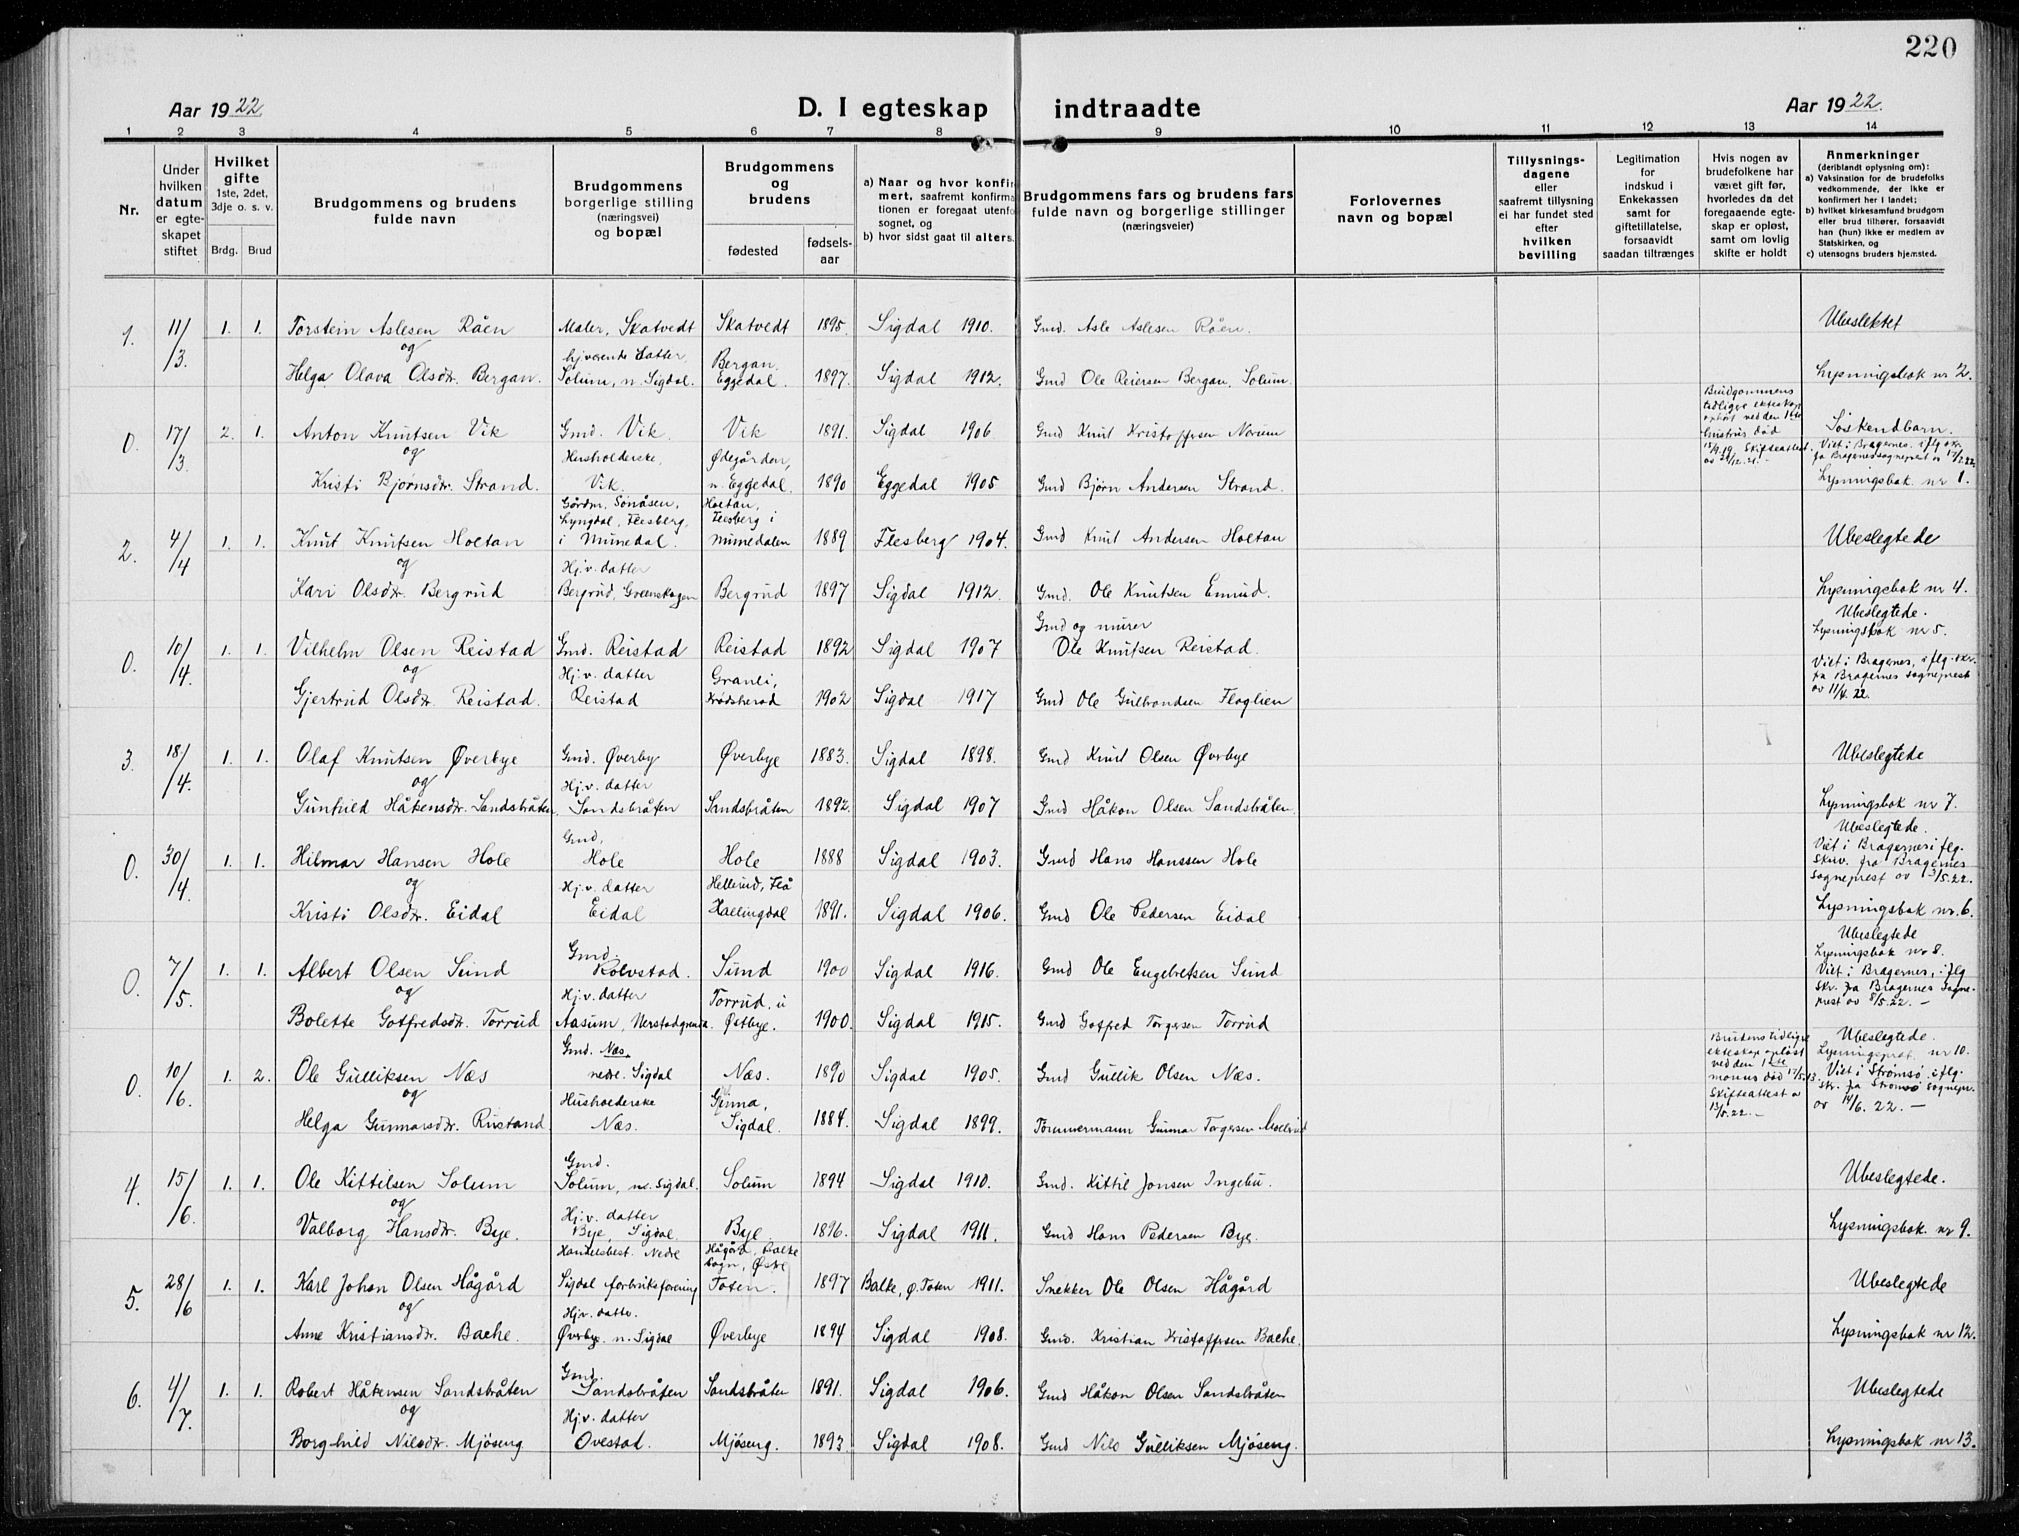 220
Aar 1922
D. I egteskap indtraadte
Aar 1922.
1 2 3 4 5 6 7 8 9 10 11 12 13 14
Nr.
Under hvilken datum er egteskapet stiftet
Hvilket gifte
1ste, 2det, 3dje o. s. v.
Brdg. Brud
Brudgommens og brudens fulde navn
Brudgommens borgerlige stilling (næringsvei) og bopæl
Brudgommens og brudens
fødested
fødselsaar
a) Naar og hvor konfirmert, saafremt konfirmationen er foregaat utenfor sognet, og
b) hvor sidst gaat til alters.
Brudgommens fars og brudens fars fulde navn og borgerlige stillinger (næringsveier)
Forlovernes navn og bopæl
Tillysningsdagene eller saafremt tillysning ei har fundet sted efter hvilken bevilling
Legitimation for indskud i Enkekassen samt for giftetillatelse, forsaavidt saadan tiltrænges
Hvis nogen av brudefolkene har været gift før, hvorledes da det foregaaende egteskap er opløst, samt om lovlig skifte er holdt
Anmerkninger (deriblandt oplysning om):
a) Vaksination for de brudefolks vedkommende, der ikke er konfirmert her i landet;
b) hvilket kirkesamfund brudgom eller brud tilhører, forsaavidt han (hun) ikke er medlem av Statskirken, og
c) utensogns bruders hjemsted.
1. 11/3 1. 1. Torstein Aslesen Råen Maler, Skatvedt Skatvedt 1895. Sigdal 1910. Gmd. Asle Aslesen Råen. Ubeslektet
og
Helga Olava Olsdtr. Bergan. hjverende datter, Solum, n. Sigdal. Bergan. Eggedal. 1897. Sigdal 1912. Gmd Ole Reiersen Bergan, Solum. Lysningsbok nr 2.
0. 17/3 2. 1. Anton Knutsen Vik Gmd. Vik Vik 1891. Sigdal 1906. Gmd Knut Kristoffersen Norum
Brudgommens tidligere ekteskap opløst ved den 1ste hustrus død 15/9.19. Skifteattest av 21/12.21.
Søskendbarn.
Viet i Bragernes, iflg. skr. fra Bragernes sogneprest av 17/3.22
og
Kristi Bjørnsdtr. Strand. Husholderske, Vik. Ødegården, n. Eggedal. 1890 Eggedal 1905 Gmd Bjørn Andersen Strand. Lysningsbok. nr 1.
2. 4/4 1. 1. Knut Knutsen Holtan Gårdm, Sønåsen, Lyngdal, Flesberg, i Numedal. Holtan, Flesberg i Numedalen 1889 Flesberg 1904. Gmd Knut Andersen Holtan Ubeslegtede
og
Kari Olsdtr. Bergrud Hj.v. datter Bergrud, Grønskogen Bergrud 1897 Sigdal 1912. Gmd. Ole Knutsen Enrud. Lysningsbok nr 4.
0. 10/4 1. 1. Vilhelm Olsen Reistad Gmd. Reistad Reistad 1892 Sigdal 1907 Gmd og murer Ole Knutsen Reistad.
Ubeslegtede.
Lysningsbok nr 5.
og
Gjertrud Olsdtr. Reistad. Hj.v. datter Reistad Granli, Krødsherad 1902 Sigdal 1917 Gmd Ole Gulbrandsen Flaglien
Viet i Bragernes, iflg. skr. fra Bragernes sogneprest av 11/4. 22.
3. 18/4. 1. 1. Olaf Knutsen Øverbye Gmd. Øverby Øverbye 1883. Sigdal 1898. Gmd Knut Olsen Øverbye Ubeslegtede
og
Gunhild Håkensdtr. Sandsbråten. Hj.v. datter Sandsbråten Sandsbråten 1892. Sigdal 1907 Gmd Håkon Olsen Sandsbråten. Lysningsbok nr 7.
0. 30/4 1. 1. Hilmar Hansen Hole Gmd, Hole Hole 1888 Sigdal 1903. Gmd Hans Hanssen Hole
Ubeslegtede.
Viet i Bragernes iflg. skriv. fra Bragernes sogneprest av 3/5.22.
og
Kristi Olsdtr. Eidal Hj.v. datter Eidal Hellerud, Flå Hallingdal 1891. Sigdal 1906. Gmd Ole Pedersen Eidal Lysningsbok nr. 6.
0. 7/5. 1. 1. Albert Olsen Sund Gmd. Kolvstad. Sund 1900 Sigdal 1916. Gmd Ole Engebretsen Sund
Ubeslegtede
Lysningsbok nr 8.
og
Bolette Gotfredsdtr. Torrud Hj.v. datter Aasum, Nerstadgrenda. Torrud, u Østbye. 1900. Sigdal 1915. Gmd Gotfred Torgersen Torrud
Viet i Bragernes, iflg skr. fra Bragernes Sogneprest av 8/5.22. —
0. 10/6. 1. 2. Ole Gulliksen Næs Gmd. Næs, nedre. Sigdal Næs. 1890 Sigdal 1905. Gmd Gullik Olsen Næs.
Brudens tidligere ekteskap opløst ved den 1ste manns død 17/5.13. Skifteattest av 13/5.22. —
Ubeslegtede.
Lysningsprot. nr 10.
Viet i Strømsø. iflg. skr. fra Strømsø sognepr. av 14/6. 22. —
og
Helga Gunnarsdtr. Rustand Husholderske Næs. Sigdal. 1884. Sigdal 1899. Tømmermann Gunnar Torgersen
4. 15/6. 1. 1. Ole Kittilsen Solum Gmd. Solum, ne. Sigdal. Solum 1894 Sigdal 1910. Gmd. Kittil Jonsen Ingebu. Ubeslegtede.
og
Valborg Hansdtr. Bye. Hj.v. datter Bye, Sigdal. Bye. 1896. Sigdal 1911. Gmd Hans Pedersen Bye. Lysningsbok. nr 9.
5. 28/6 1. 1. Karl Johan Olsen Hågård Handelsbest. Nedre Sigdal forbruksforening Hågård, Balke sogn, Østre Toten. 1897 Balke, ø. Toten 1911. Snekker Ole Olsen Hågård Ubeslegtede
og
Anne Kristiansdtr. Bache. Hj.v. datte. Øverbye. n. Sigdal Øverbye 1894 Sigdal 1908. Gmd. Kristian Kristoffersen Bache. Lysningsbok nr 12.
6. 4/7. 1. 1. Robert Håkensen Sandsbråten Gmd. Sandsbråten Sandsbråten 1891. Sigdal 1906. Gmd Håkon Olsen Sandsbråten Ubeslegtede
og
Borghild Nilsdtr. Mjøseng Hj.v. datter Ovestad. Mjøseng. 1893 Sigdal 1908. Gmd Nils Gulliksen Mjøseng. Lysningsbok nr 13.